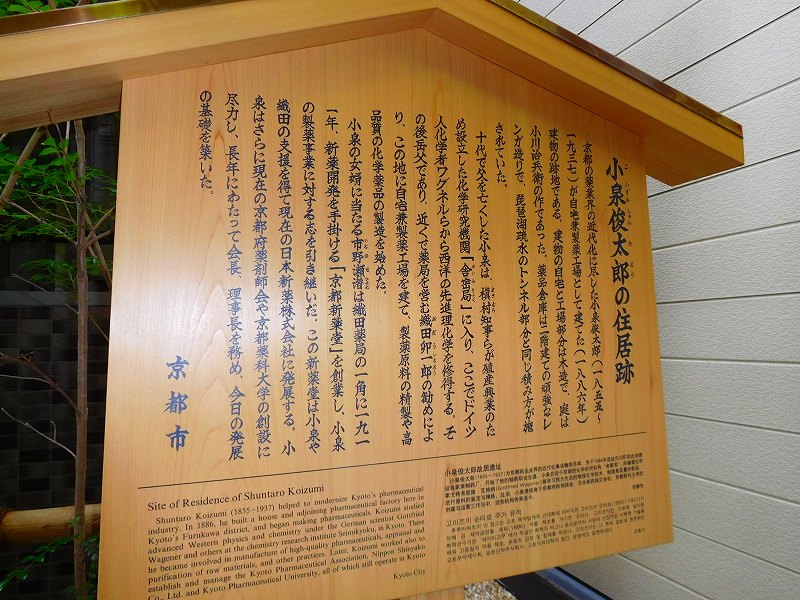 小泉俊太郎の住居跡
京都の薬業界の近代化に尽した小泉俊太郎(一八五五〜
一九三七)が自宅兼製薬工場として建てた(一八八六年)
建物の跡地である。建物の自宅と工場部分は木造で、庭は
小川治兵衛の作であった。薬品倉庫は二階建ての頑強なレ
ンガ造りで、琵琶湖疏水のトンネル部分と同じ積み方が施
されていた。
十代で父を亡くした小泉は、槇村知事らが殖産興業のた
め設立した化学研究機関「舎密局」に入り、ここでドイツ
人化学者ワグネルらから西洋の先進理化学を修得する。そ
の後岳父であり、近くで薬局を営む織田卯一郎の勧めによ
り、この地に自宅兼製薬工場を建て、製薬原料の精製や高
品質の化学薬品の製造を始めた。
小泉の女婿に当たる市野瀬潜は織田薬局の一角に一九一
一年、新薬開発を手掛ける「京都新薬堂」を創業し、小泉
の製薬事業に対する志を引き継いだ。この新薬堂は小泉や
織田の支援を得て現在の日本新薬株式会社に発展する。小
泉はさらに現在の京都府薬剤師会や京都薬科大学の創設に
尽力し、長年にわたって会長、理事長を務め、今日の発展
の基礎を築いた。
京都市
Site of Residence of Shuntaro Koizumi
Shuntaro Koizumi (1855-1937) helped to modernize Kyoto's pharmaceutical
industry. In 1886, he built a house and adjoining pharmaceutical factory here in
Kyoto's Furukawa district, and began making pharmaceuticals. Koizumi studied
advanced Western physics and chemistry under the German scientist Gottfried
Wagener and others at the chemistry research institute Seimikyoku, in Kyoto. There
he became involved in manufacture of high-quality pharmaceuticals, appraisal and
purification of raw materials, and other practices. Later, Koizumi worked also to
establish and manage the Kyoto Pharmaceutical Association, Nippon Shinyaku
Co., Ltd. and Kyoto Pharmaceutical University, all of which still operate in Kyoto
Kyoto City
小泉俊太郎故居遗址
고이즈미 슌타로 주거 유적